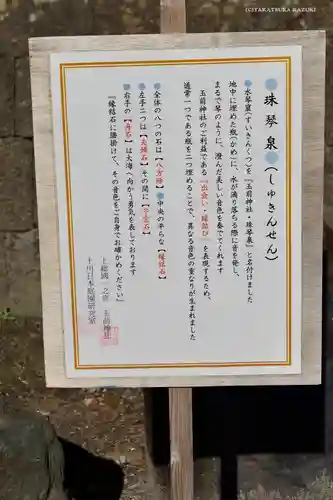 (C)TARATSUKA KAZUKI
珠琴泉(しゅきんせん)
水琴窟(すいきんくつ)を『玉前神社・珠琴泉』と名付けました
地中に埋めた瓶(かめ)に、水が滴り落ちる際に音を発し、
まるで琴のように、澄んだ美しい音色を奏でてくれます
玉前神社のご利益である『出会い・縁結び』を表現するため、
通常一つである瓶を二つ埋めることで、異なる音色の重なりが生まれました
全体の八つの石は【八方除】中央の平らな【縁結石】
左手二つは【夫婦石】その間に【子宝石】
右手の【舟石】は大海へ向かう勇気を表しております
『縁結石に腰掛けて、その音色をご自身でお確かめください』
上総國一之宮 玉前神社
十川日本庭園研究室